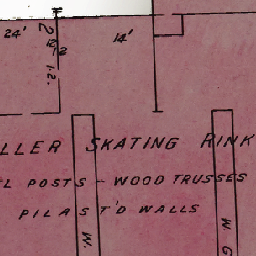 24'
14'
12.
LLER SKATING RINK
L POSTS - WOOD TRUSSES
PILAST'D WALLS
W.
W G